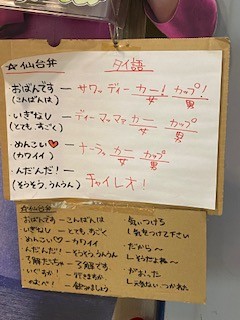 ☆仙台弁　タイ語
・おばんです！ー サワッディーカー！カップ！
(こんばんは)　女　男
・いぎなし ー ディーマーク カー カップ
(とても、すごく)　女　男
・めんこい♡ ー ナーラック カー カップ
(カワイイ)　女　男
・んだんだ！ー チャイレオ！
(そうそう、うんうん)
☆仙台弁
おばんです ー こんばんは
いぎなし ー とても、すごく
めんこい♡ ー カワイイ
んだんだ！ー そうそう うんうん
了解だっちゃ ー 了解です
いぐすか！ー 行きますか
のむべ！ー 飲みましょう
気いつけろ
↳気をつけて下さい
・だから〜
↳そうだよね〜